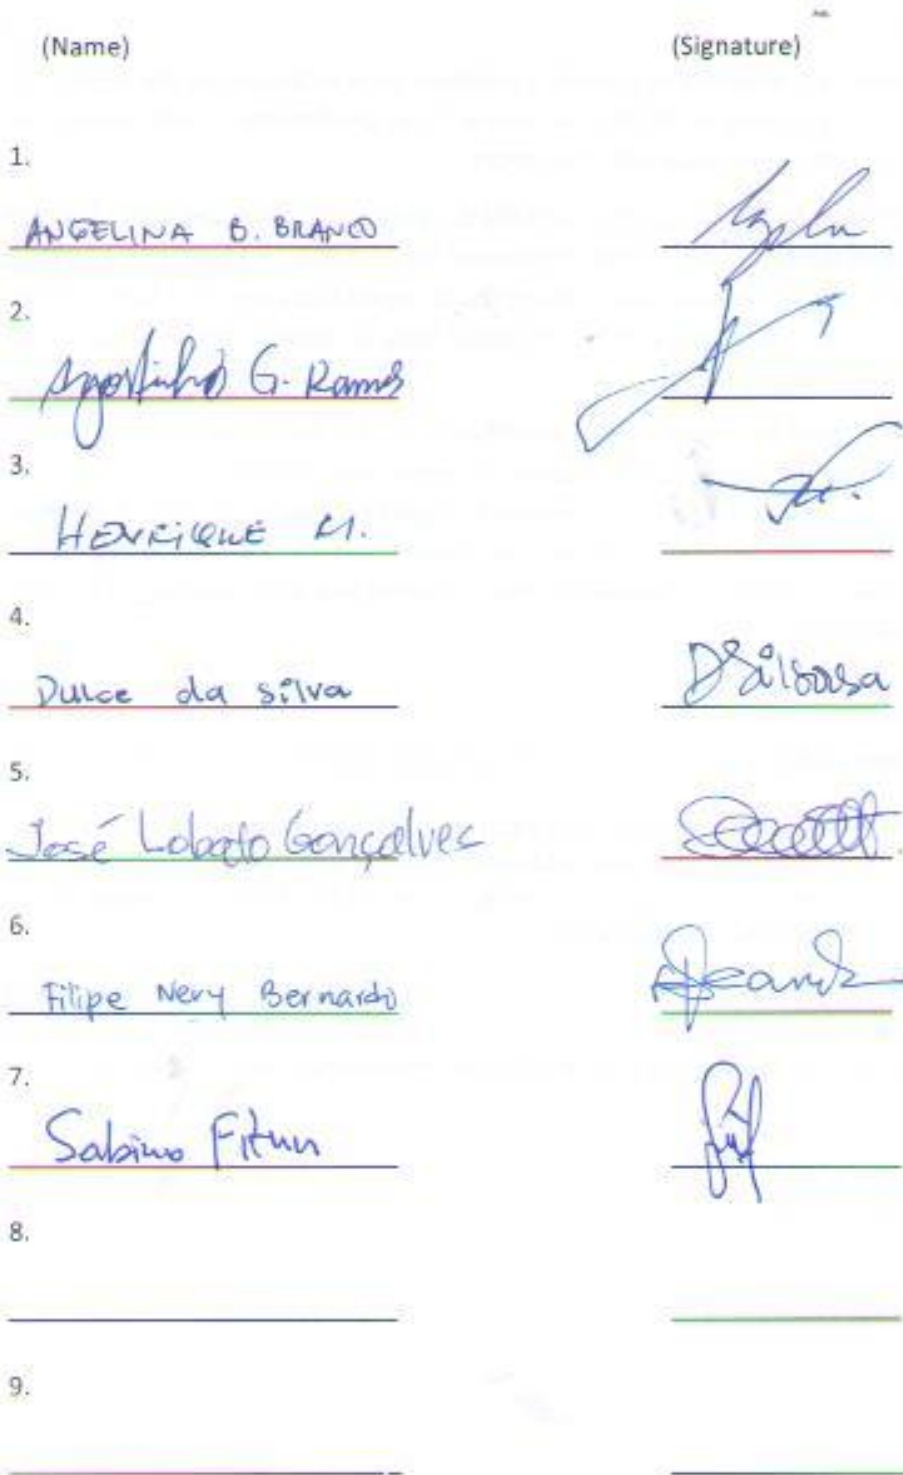 (Name) (Signature)
1.
ANGELINA B. BRANCO
2.
Agostinho G. Ramos
3.
HENRIQUE M.
4.
Dulce da silva
5.
José Lobato Gonçalves
6.
Filipe Nery Bernardo
7.
Sabino Fitun
8.
9.